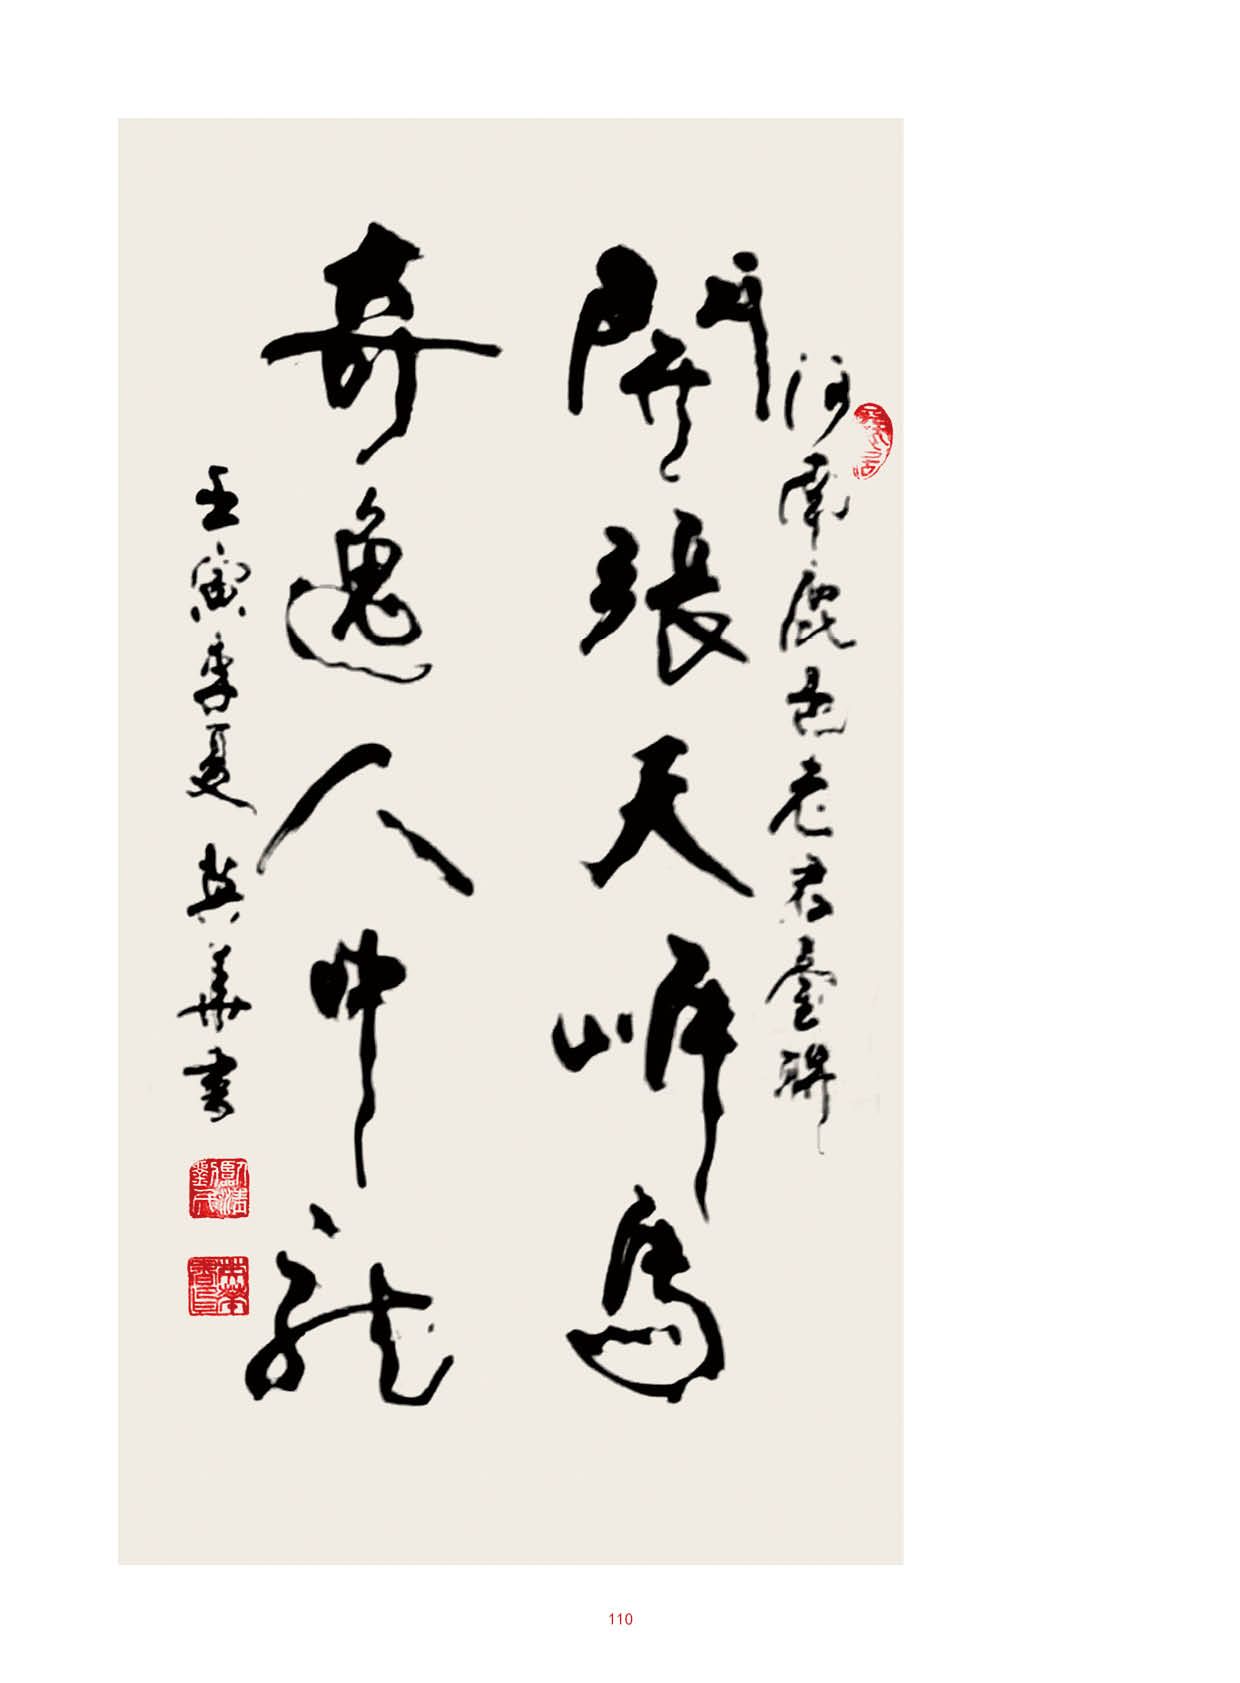 河南鹿邑老君臺聯
開張天岸馬
奇逸人中龍
壬寅季夏 英華書
110